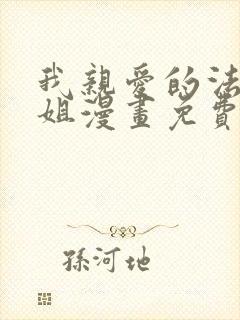 我親愛的法
姐漫畫免費
孫河地